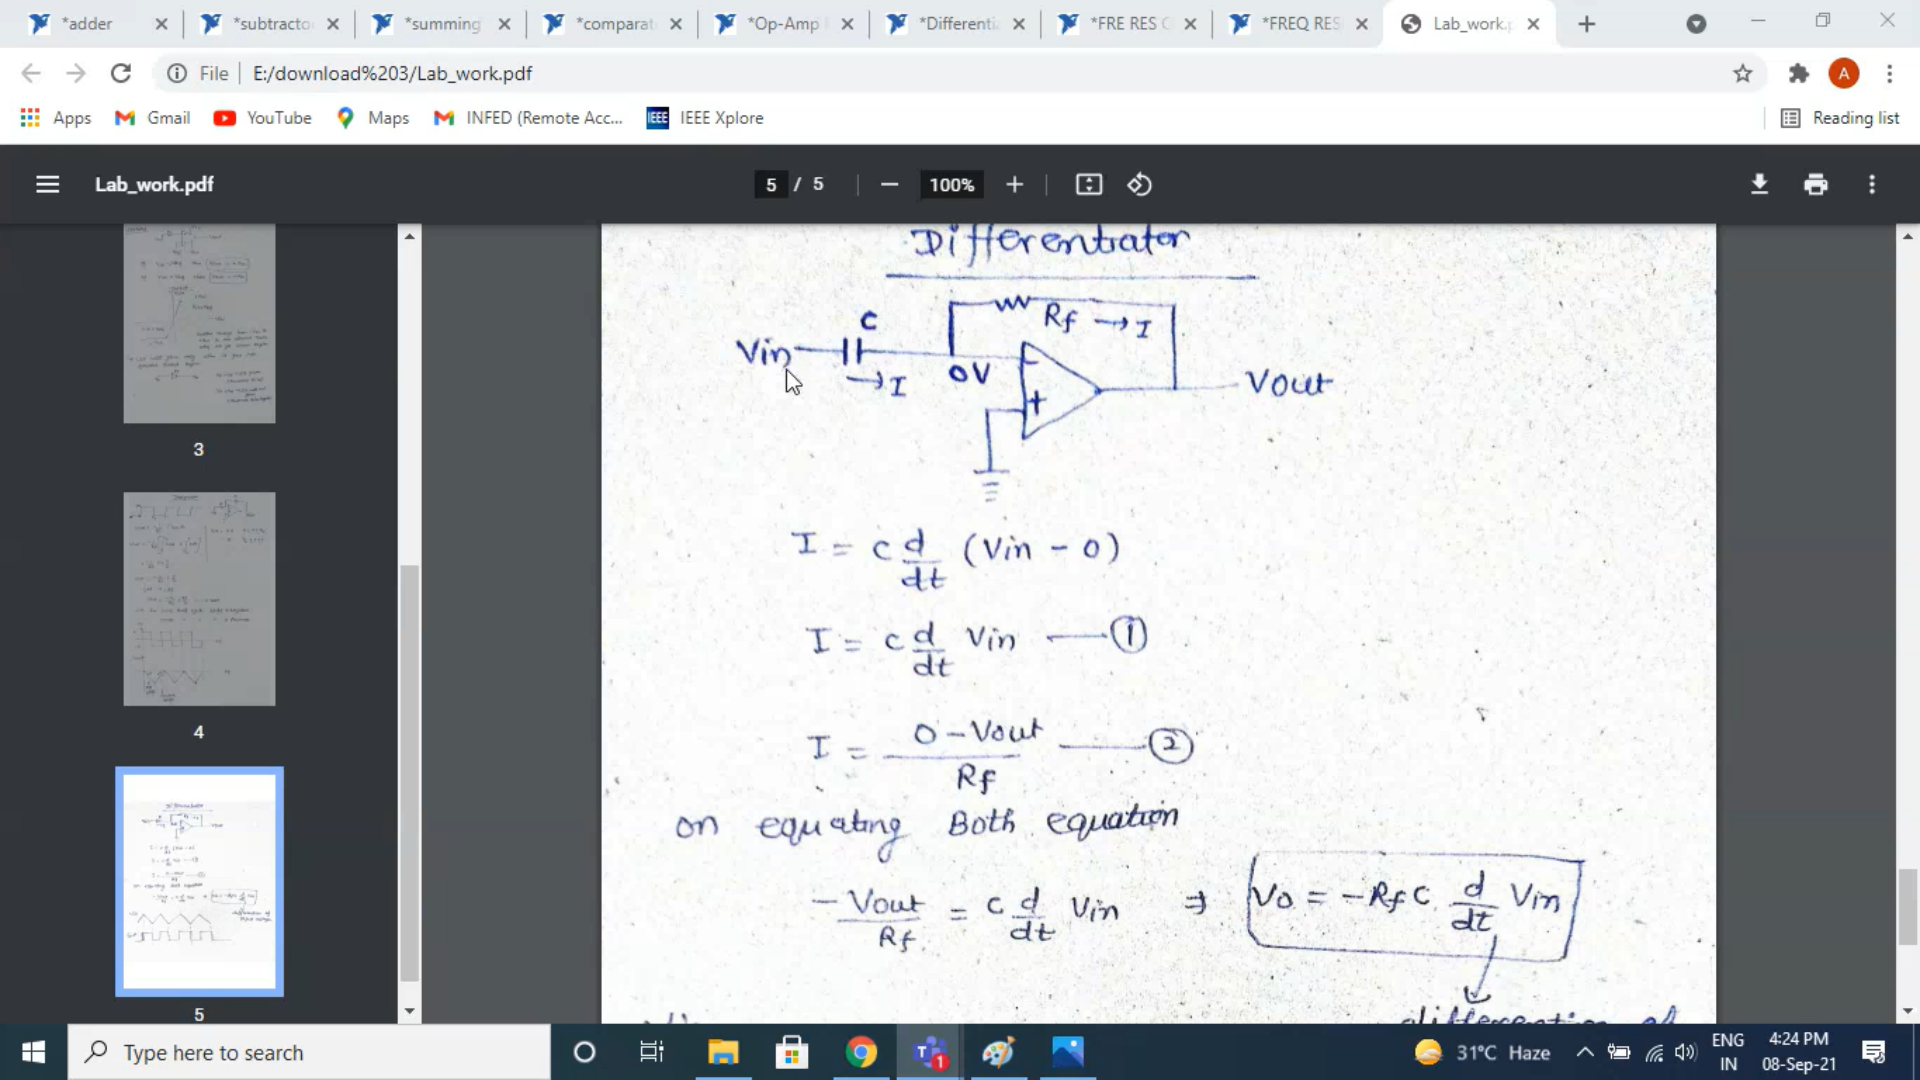 *adder
*subtracto
*summing
*comparat
*Op-Amp
*Differentia
*FRE RES
*FREQ RES
Lab_work.p
File
E:/download%203/Lab_work.pdf
A
Apps
Gmail
YouTube
Maps
INFED (Remote Acc...
IEEE
IEEE Xplore
Reading list
Lab_work.pdf
5 / 5
100%
3
4
5
Differentiator
C
Rf → I
Vin
→ I
0V
-
+
Vout
I = c d/dt (Vin - 0)
I = c d/dt Vin —— ①
I = 0 - Vout / Rf —— ②
on equating Both equation
- Vout / Rf = c d/dt Vin ⇒ V0 = -Rf C d/dt Vin
Type here to search
1
31°C Haze
ENG
IN
4:24 PM
08-Sep-21